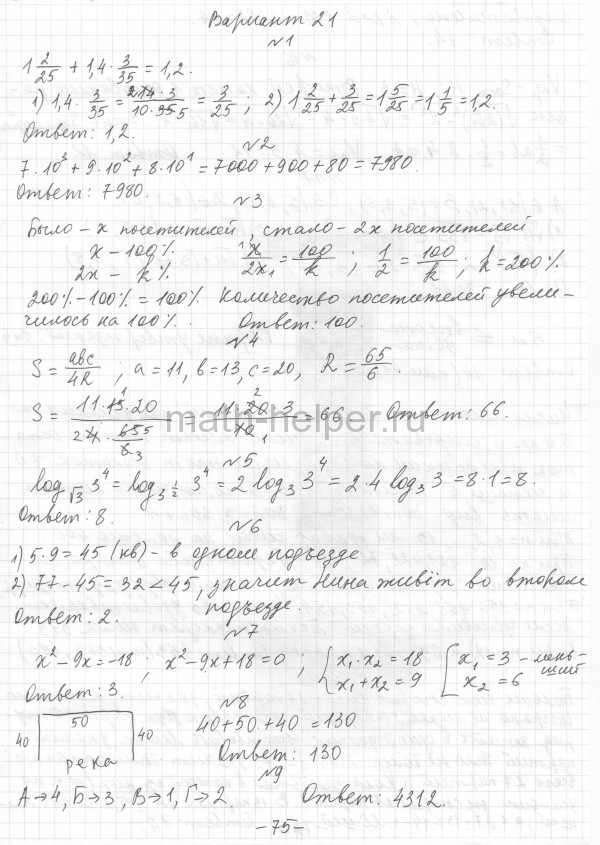 Вариант 21
№1
1 2/25 + 1,4 · 3/35 = 1,2.
1) 1,4 · 3/35 = 14·3/10·35 5 = 3/25 ; 2) 1 2/25 + 3/25 = 1 5/25 = 1 1/5 = 1,2.
Ответ: 1,2.
№2
7·10³ + 9·10² + 8·10¹ = 7000 + 900 + 80 = 7980.
Ответ: 7980.
№3
Было – x посетителей, стало – 2x посетителей
x – 100%
2x – k%
1 x/2x 1 = 100/k ; 1/2 = 100/k ; k = 200%
200% – 100% = 100%. Количество посетителей увели-
чилось на 100%. Ответ: 100.
№4
S = abc/4R , a = 11, b = 13, c = 20, R = 65/6.
S = 11·13·20/4·65/6 = 11·20·3/10 = 66 Ответ: 66.
math-helper.ru
№5
log√3 3⁴ = log3^1/2 3⁴ = 2 log₃ 3⁴ = 2·4 log₃ 3 = 8·1 = 8.
Ответ: 8.
№6
1) 5·9 = 45 (кв) – в одном подъезде
2) 77 – 45 = 32 < 45, значит Нина живёт во втором
подъезде.
Ответ: 2.
№7
x² – 9x = –18 ; x² – 9x + 18 = 0 ; { x₁·x₂ = 18 [ x₁ = 3 – мень-
x₁ + x₂ = 9 x₂ = 6 ший
Ответ: 3.
№8
50
40 40
река
40 + 50 + 40 = 130
Ответ: 130
№9
А→4, Б→3, В→1, Г→2. Ответ: 4312.
–75–